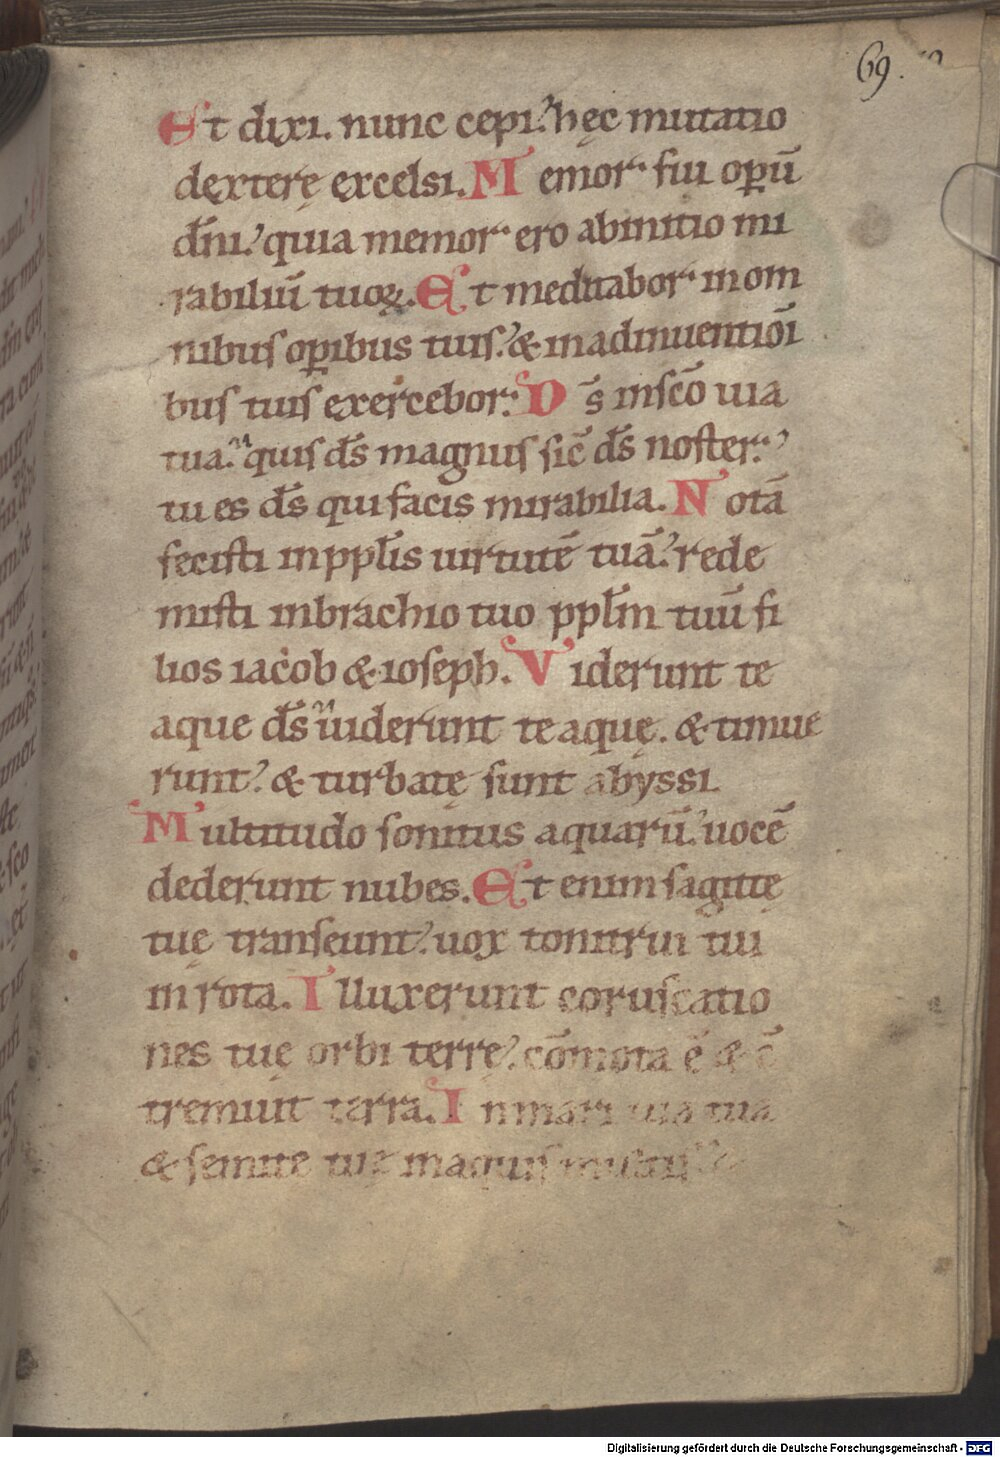 69.
Et dixi. nunc cepi. hęc mutatio
dęxterę excelsi. Memor fui oꝑū
dn̄i. quia memor ero abinitio mi
rabiliuī tuoꝝ. Et meditabor in om
nibus oꝑibus tuis. & inadinuentiōi
bus tuis exercebor. Ds̄ insc̄o uia
tua. quis ds̄ magnus sic̄ ds̄ noster.
tu es ds̄ qui facis mirabilia. Notā
fecisti inppl̄is uirtutē tuā. rede
misti inbrachio tuo ppl̄m tuū fi
lios iacob & ioseph. Viderunt te
aque ds̄ uiderunt te aquę. & timue
runt. & turbatę sunt abyssi.
Multitudo sonitus aquarū. uocē
dederunt nubes. Et enim sagittę
tuę transeunt. uox tonitrui tui
in rota. Illuxerunt coruscatio
nes tuę orbi terrę. cōmota ē & c̄
tremuit terra. Inmari uia tua
& semite tuę inaquis multis. &
Digitalisierung gefördert durch die Deutsche Forschungsgemeinschaft - DFG